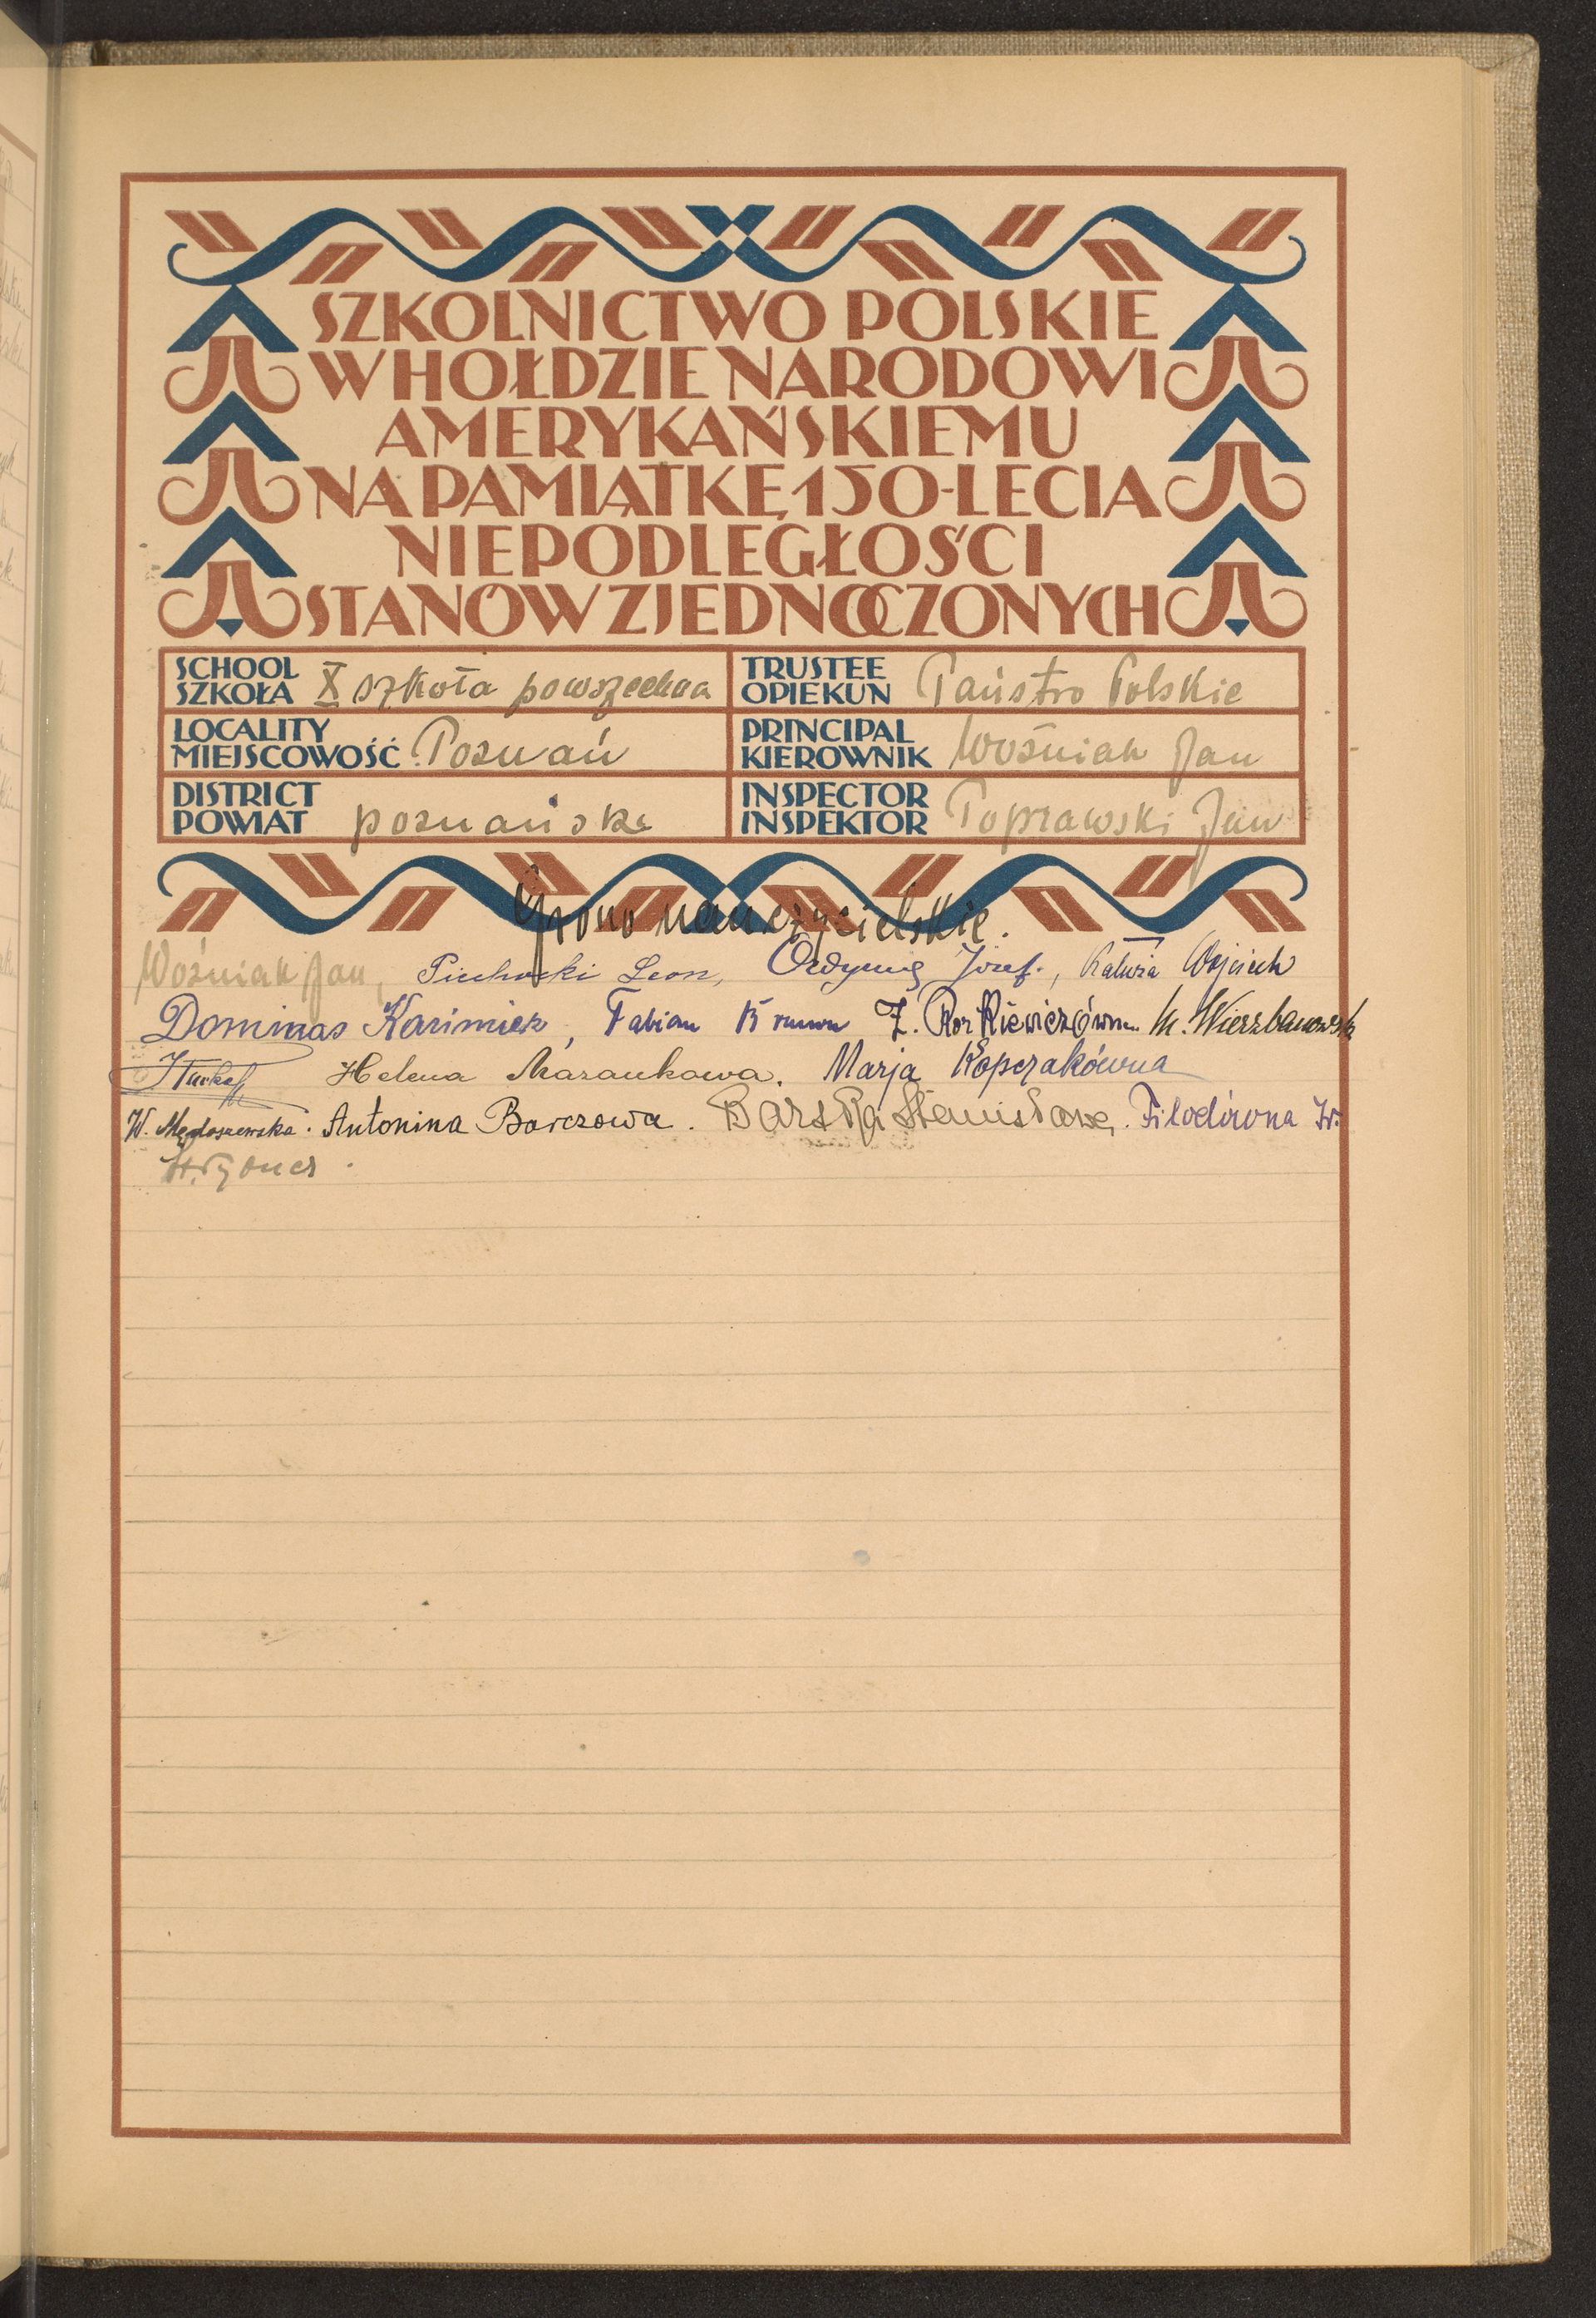 SZKOLNICTWO POLSKIE
W HOŁDZIE NARODOWI
AMERYKAŃSKIEMU
NA PAMIĄTKĘ 150-LECIA
NIEPODLEGŁOŚCI
STANÓW ZJEDNOCZONYCH
SCHOOL
SZKOŁA X szkoła powszechna
TRUSTEE
OPIEKUN Państwo Polskie
LOCALITY
MIEJSCOWOŚĆ Poznań
PRINCIPAL
KIEROWNIK Woźniak Jan
DISTRICT
POWIAT poznański
INSPECTOR
INSPEKTOR Poprawski Jan
Grono nauczycielskie.
Woźniak Jan, Piechocki Leon, Józef., Kałuża Wojciech
Dominas Kazimierz, Fabian Z. M. Wierzbanowska
Helena Marankowa. Marja Kopczakówna
W. Mędoszewska. Antonina Barczowa. Barska Stanisława. W.